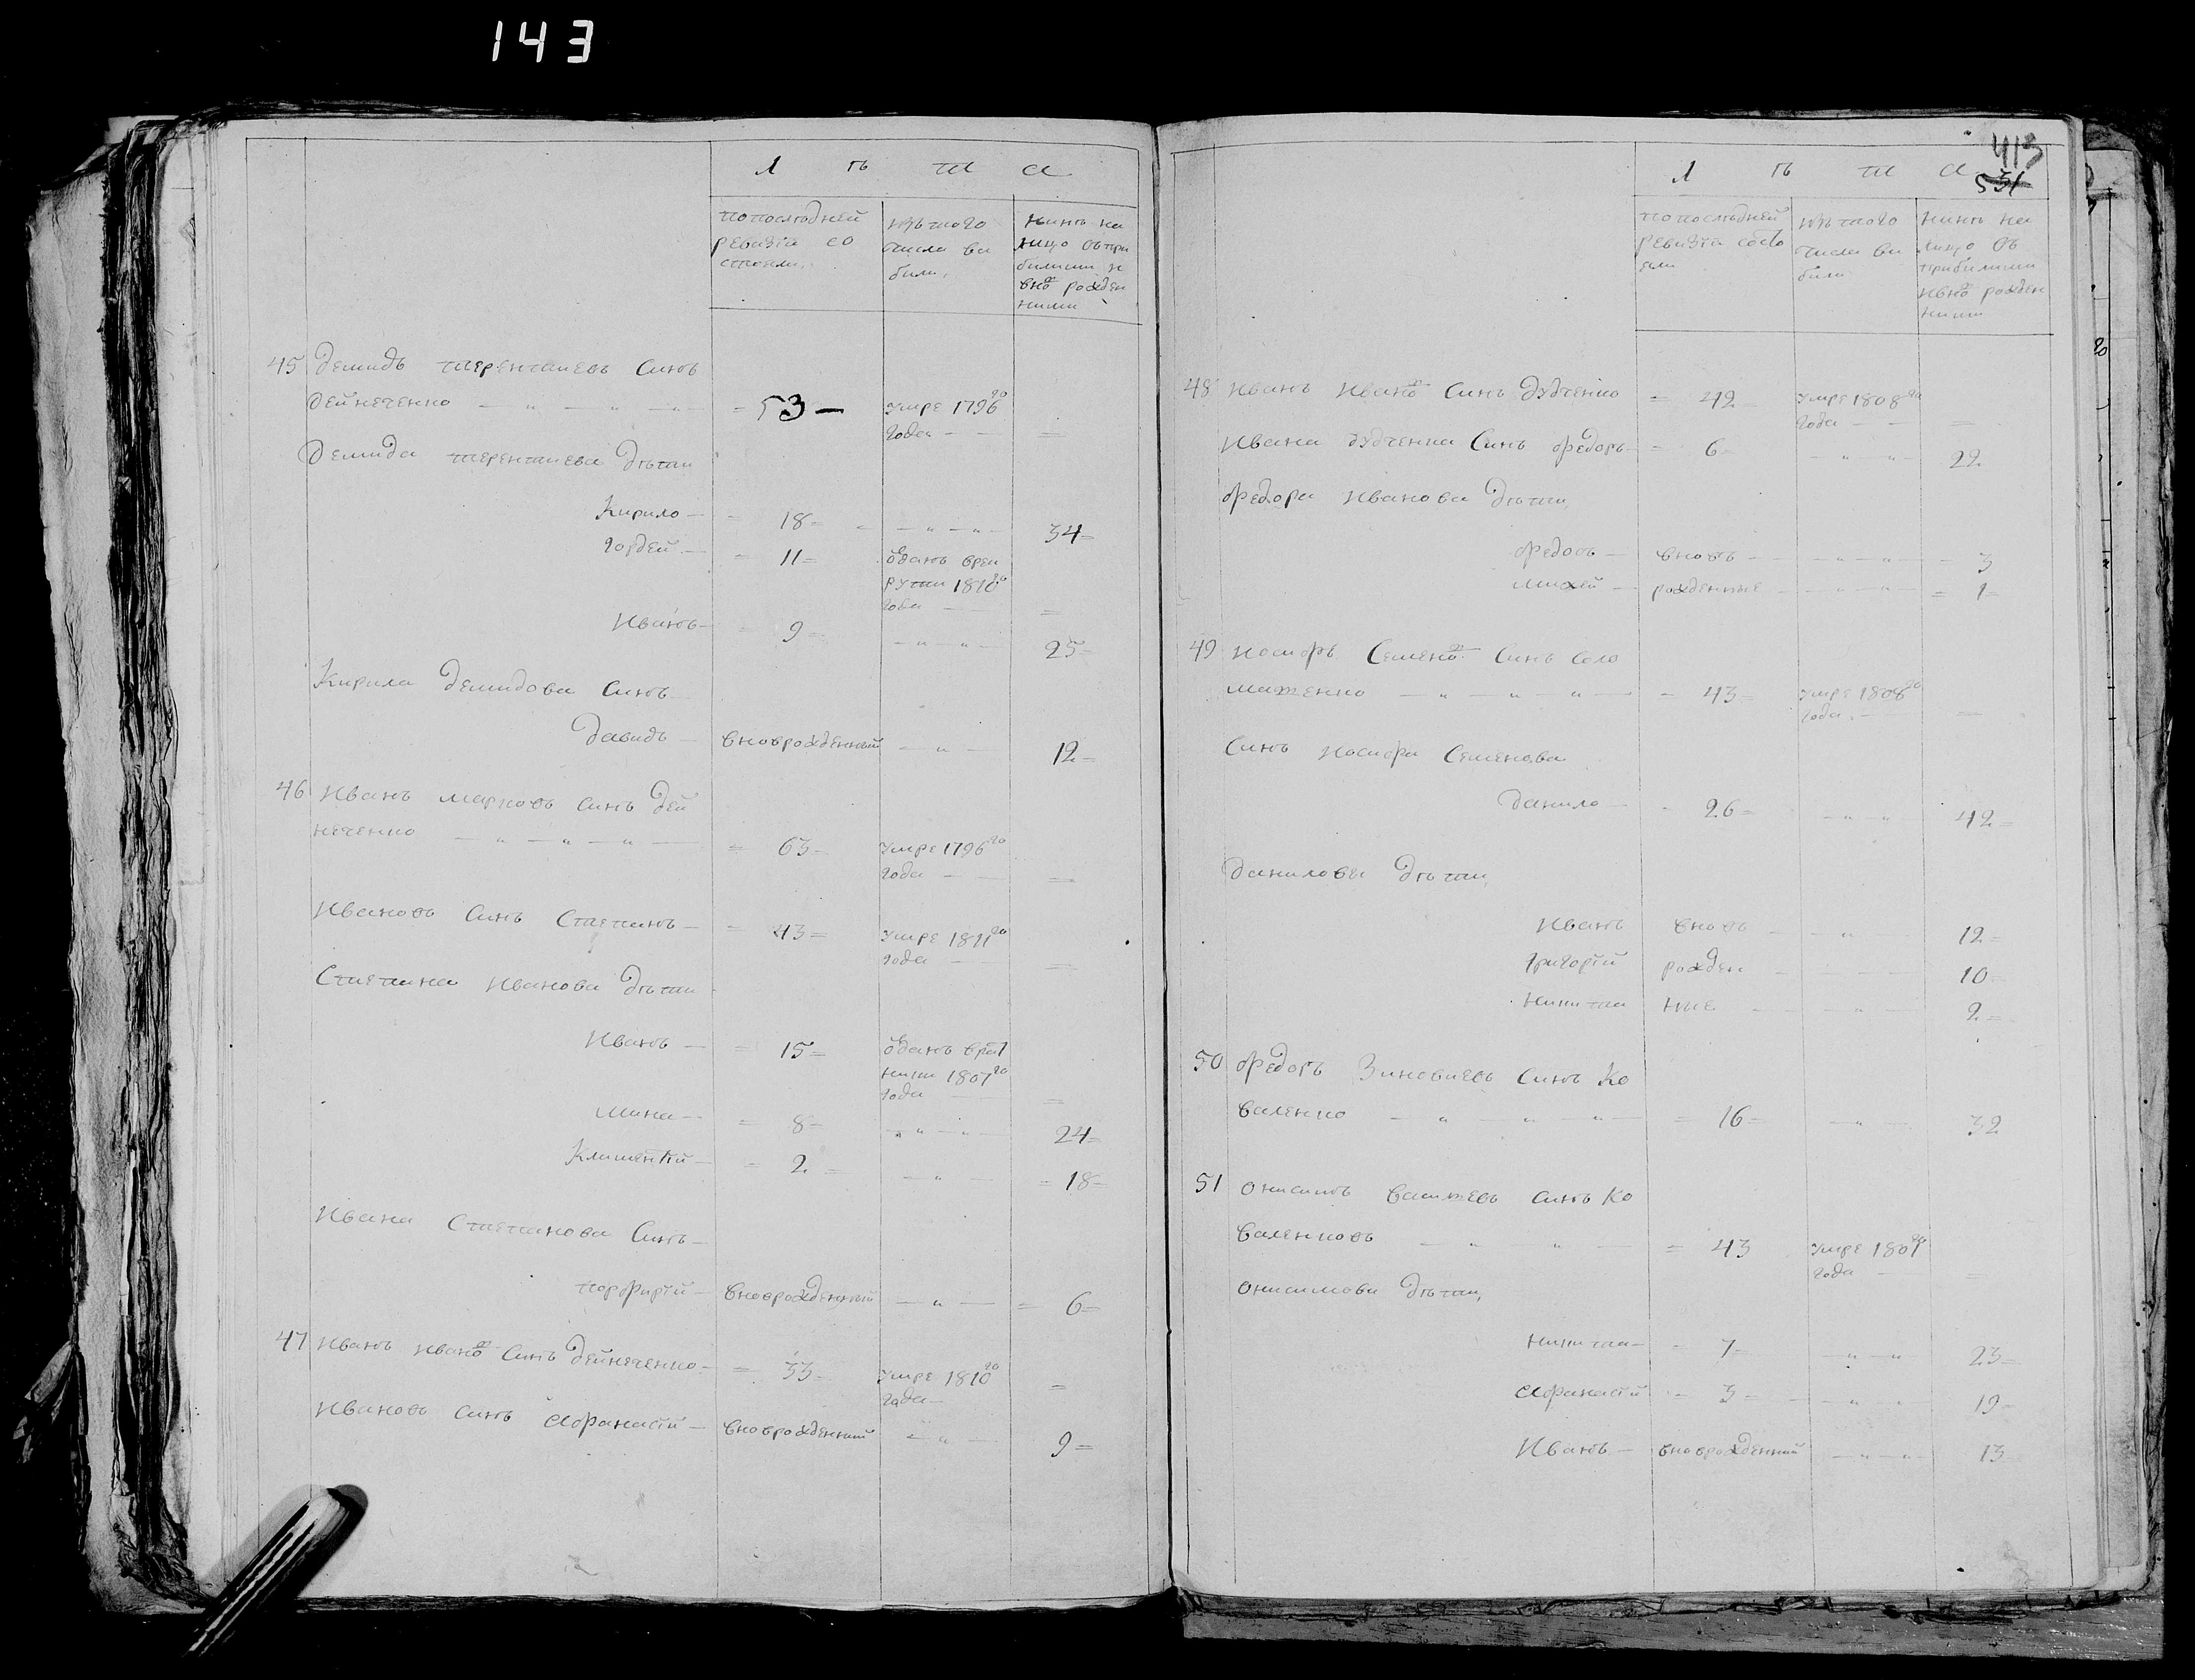 143
Л ѣ т а
по последней ревизіи со стояли,
изъ того числа вы били,
нинѣ на лицо съ при билими и внов рожден ними
45 Демидъ терентиевъ Синъ
Дейнеченко — 53 — умре 1796го года —
Демида терентиева дѣти
Кирило — 18 — 34
Гордей — 11 — одднъ врек рути 1810го года —
Иванъ — 9 — 25
Кирила Демидова Синъ
Давидъ — вноврожденный — 12
46 Иванъ марковъ синъ Дей
неченко — 63 — умре 1796го года —
Ивановъ Синъ Степанъ — 43 — умре 1811го года —
Степана Иванова дѣти
Иванъ — 15 — 1807го года —
мина — 8 — 24
Климентій — 2 — 18
Ивана Степанова Синъ —
порфирій — вноврожденный — 6
47 Иванъ Ивано Синъ Дейнеченко — 33 — умре 1810го года —
Ивановъ синъ Афанасій — вноврожденний — 9
413
531
Л ѣ т а
по последней ревизіи состо яли
изъ того числа ви били
нинѣ на лицо съ прибилими ивно рожден ними
48 Иванъ Ивано Синъ Дудченко — 42 — умре 1808го года —
Ивана дудченка Синъ Федоръ — 6 — 22
Федора Иванова дѣти,
Федосъ — вновъ — 3
михей — рожденные — 1
49 Иосифъ Семено Синъ Соло
маженко — 43 — умре 1808го года. —
Синъ Иосифа Семенова
данило — 26 — 42
Данилови дѣти,
Иванъ вновъ — 12
григорій рожден — 10
Никита ные — 2
50 Федоръ Зиновиевъ Синъ Ко
валенко — 16 — 32
51 Онисимъ Синъ Ко
валенковъ — 43 умре 1807го года —
Онисимови дѣти,
Никита — 7 — 23
Афанасій — 3 — 19
Иванъ — вноврожденний — 13